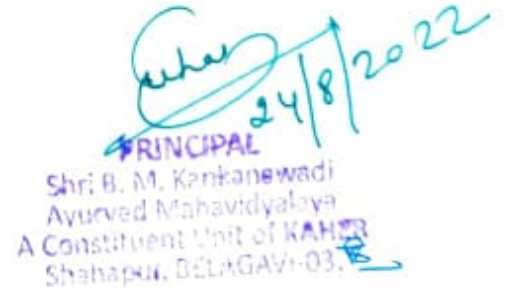 24/8/2022
PRINCIPAL
Shri B. M. Kankanewadi
Ayurved Mahavidyalaya
A Constituent Unit of KAHER
Shahapur, BELAGAVI-03.